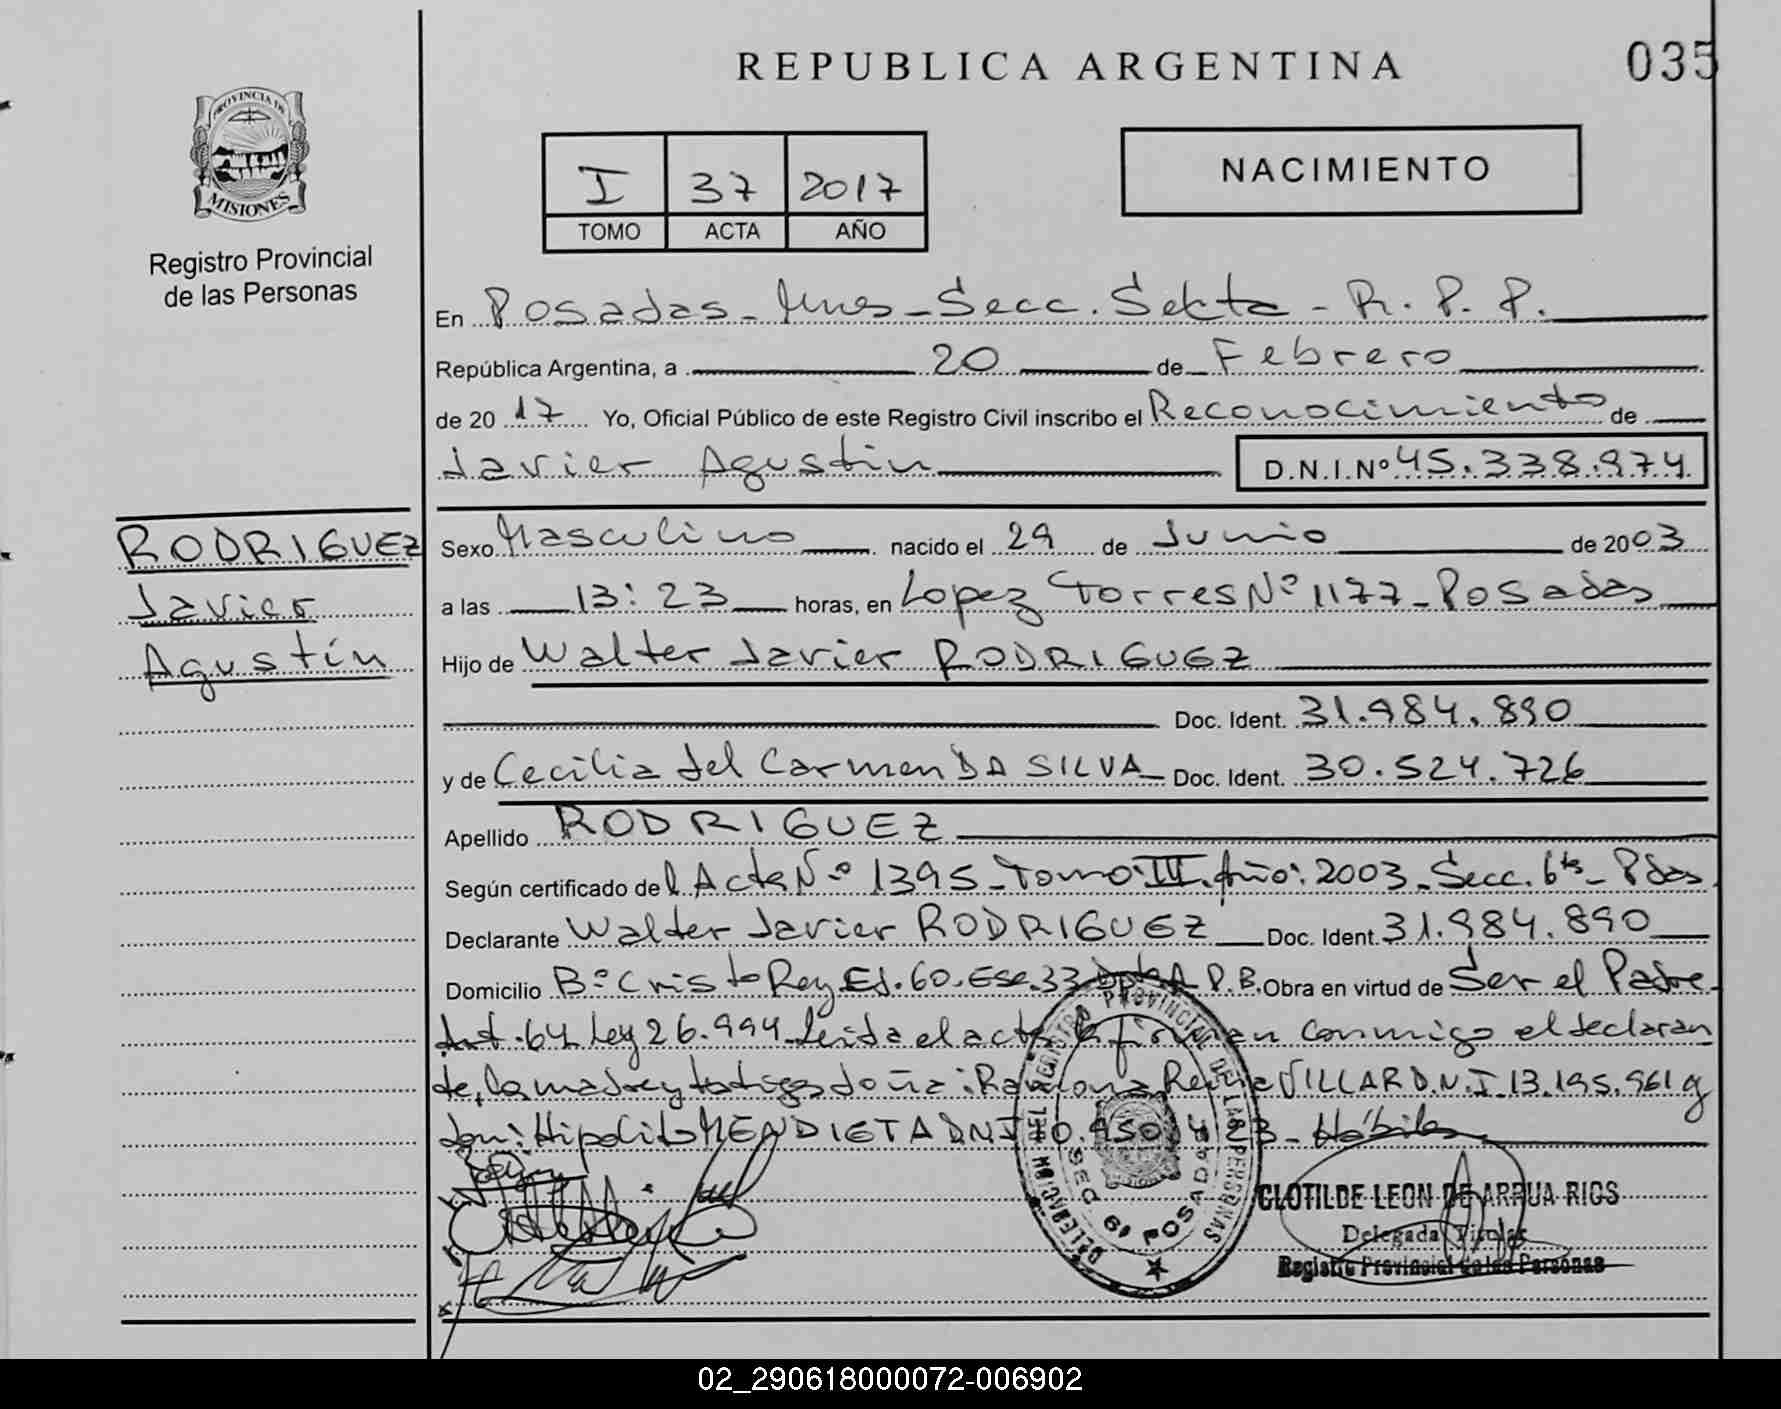 REPUBLICA ARGENTINA
035
PROVINCIA DE
MISIONES
Registro Provincial
de las Personas
I 37 2017
TOMO ACTA AÑO
NACIMIENTO
En Posadas - Mnes - Secc. Sexta - R. P. P.
República Argentina, a 20 de Febrero
de 2017 Yo, Oficial Público de este Registro Civil inscribo el Reconocimiento de
Javier Agustin
D.N.I.Nº 45.338.974
RODRIGUEZ
Javier
Agustín
Sexo Masculino nacido el 29 de Junio de 2003
a las 13:23 horas, en Lopez Torres Nº 1177 - Posadas
Hijo de Walter Javier RODRIGUEZ
Doc. Ident. 31.984.890
y de Cecilia del Carmen DA SILVA Doc. Ident. 30.524.726
Apellido RODRIGUEZ
Según certificado del Acta Nº 1395 - Tomo: III. Año: 2003 - Secc. 6ta - Pdas
Declarante Walter Javier RODRIGUEZ Doc. Ident. 31.984.890
Domicilio Bº Cristo Rey Ed. 60. Esc. 33 Dpto A P.B. Obra en virtud de Ser el Padre
Art. 64 Ley 26.994 leida el acta la firman conmigo el declaran
te, la madre y testigos doña: Ramona Reina VILLAR D.N.I 13.195.961 y
don: Hipolito MENDIETA DNI 10.950.423 - Hábiles
DELEGACION DEL REGISTRO PROVINCIAL DE LAS PERSONAS
SEC 6º POSADAS
CLOTILDE LEON DE ARRUA RIOS
Delegada Titular
Registro Provincial de las Personas
02_290618000072-006902